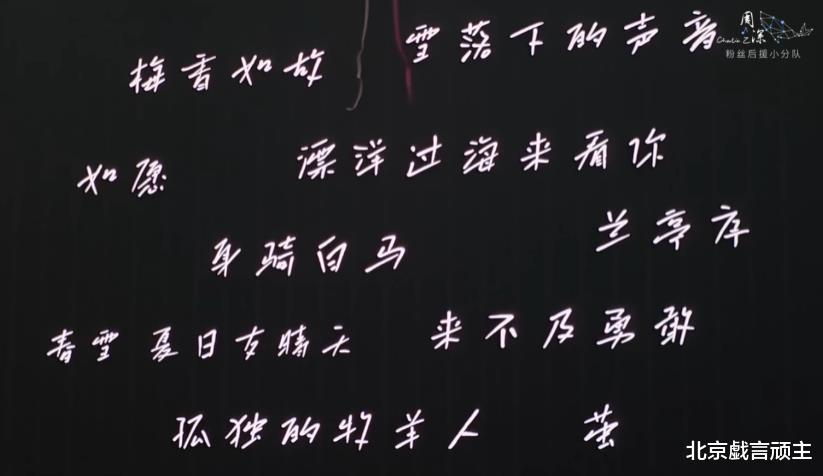 周深
Charlie Z
粉丝后援小分队
梅香如故 雪落下的声音
如愿 漂洋过海来看你
身骑白马 兰亭序
春雪 夏日友晴天 来不及勇敢
孤独的牧羊人 茧
北京戲言顽主